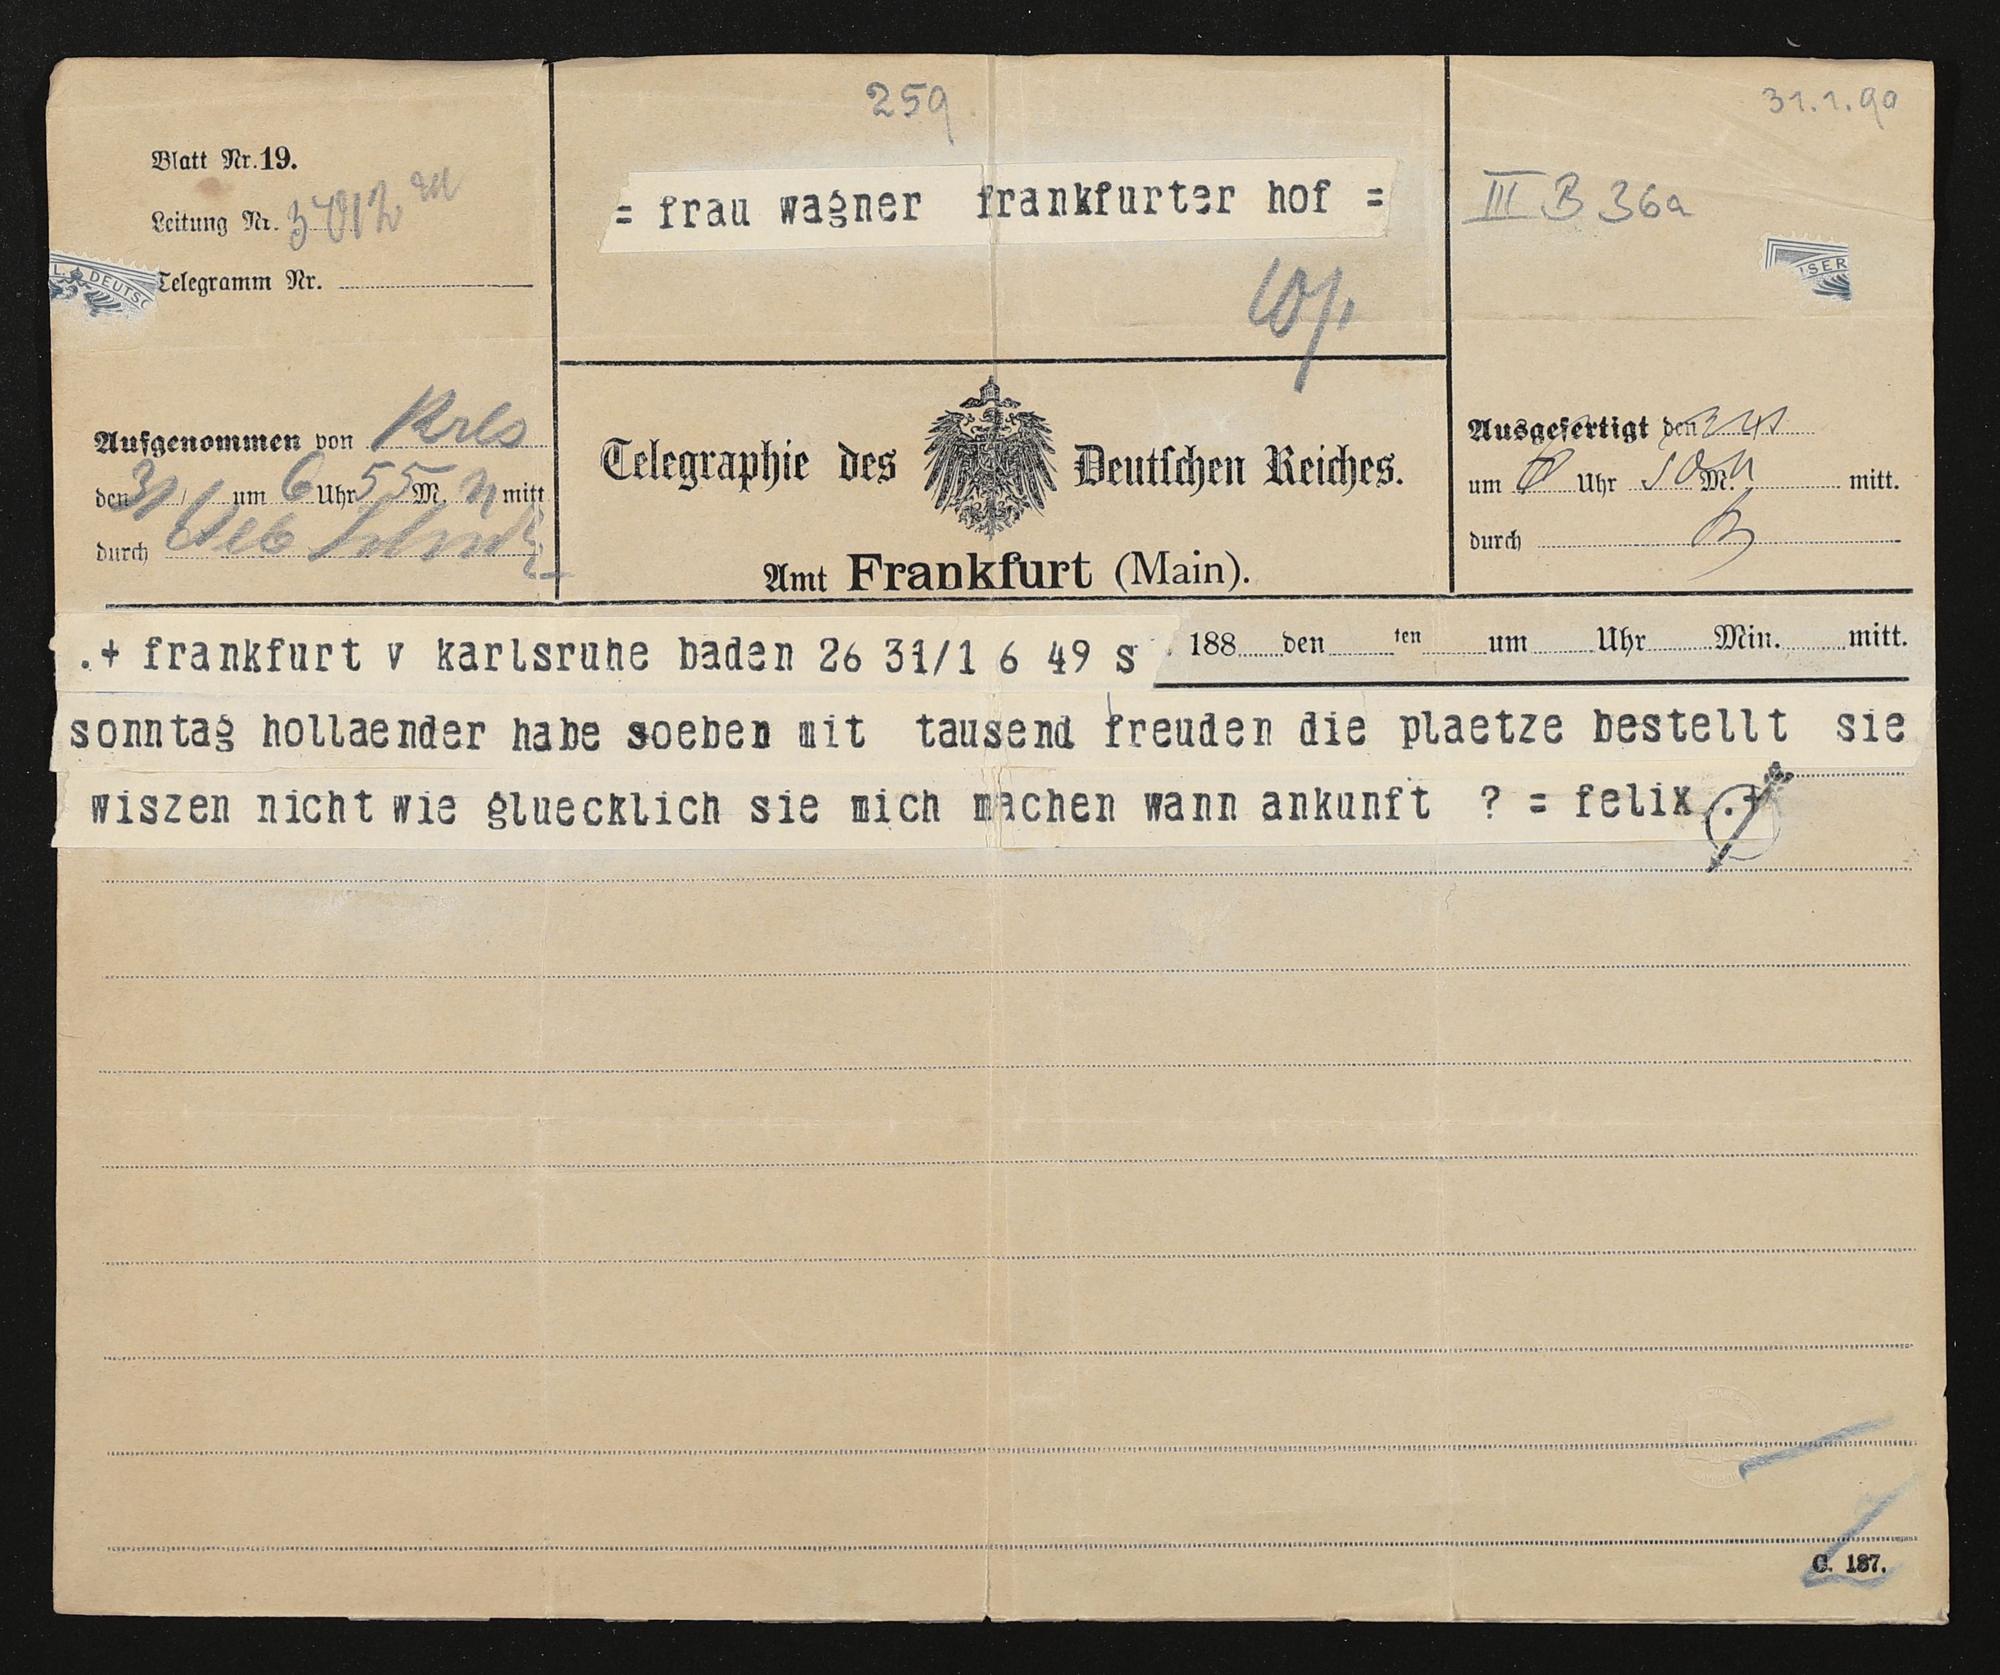 259
31.1.90
Blatt Nr. 19.
Leitung Nr.
Telegramm Nr.
L. DEUTSC
= frau wagner frankfurter hof =
III B 36a
ISER
Aufgenommen von
den 31/ um 6 Uhr 55 M. mitt
durch
Telegraphie des Deutschen Reiches.
Amt Frankfurt (Main).
Ausgefertigt den
um Uhr M. mitt.
durch
.+ frankfurt v karlsruhe baden 26 31/1 6 49 s
188 den ten um Uhr Min. mitt.
sonntag hollaender habe soeben mit tausend freuden die plaetze bestellt sie
wiszen nicht wie gluecklich sie mich machen wann ankunft ? = felix .+
C. 187.